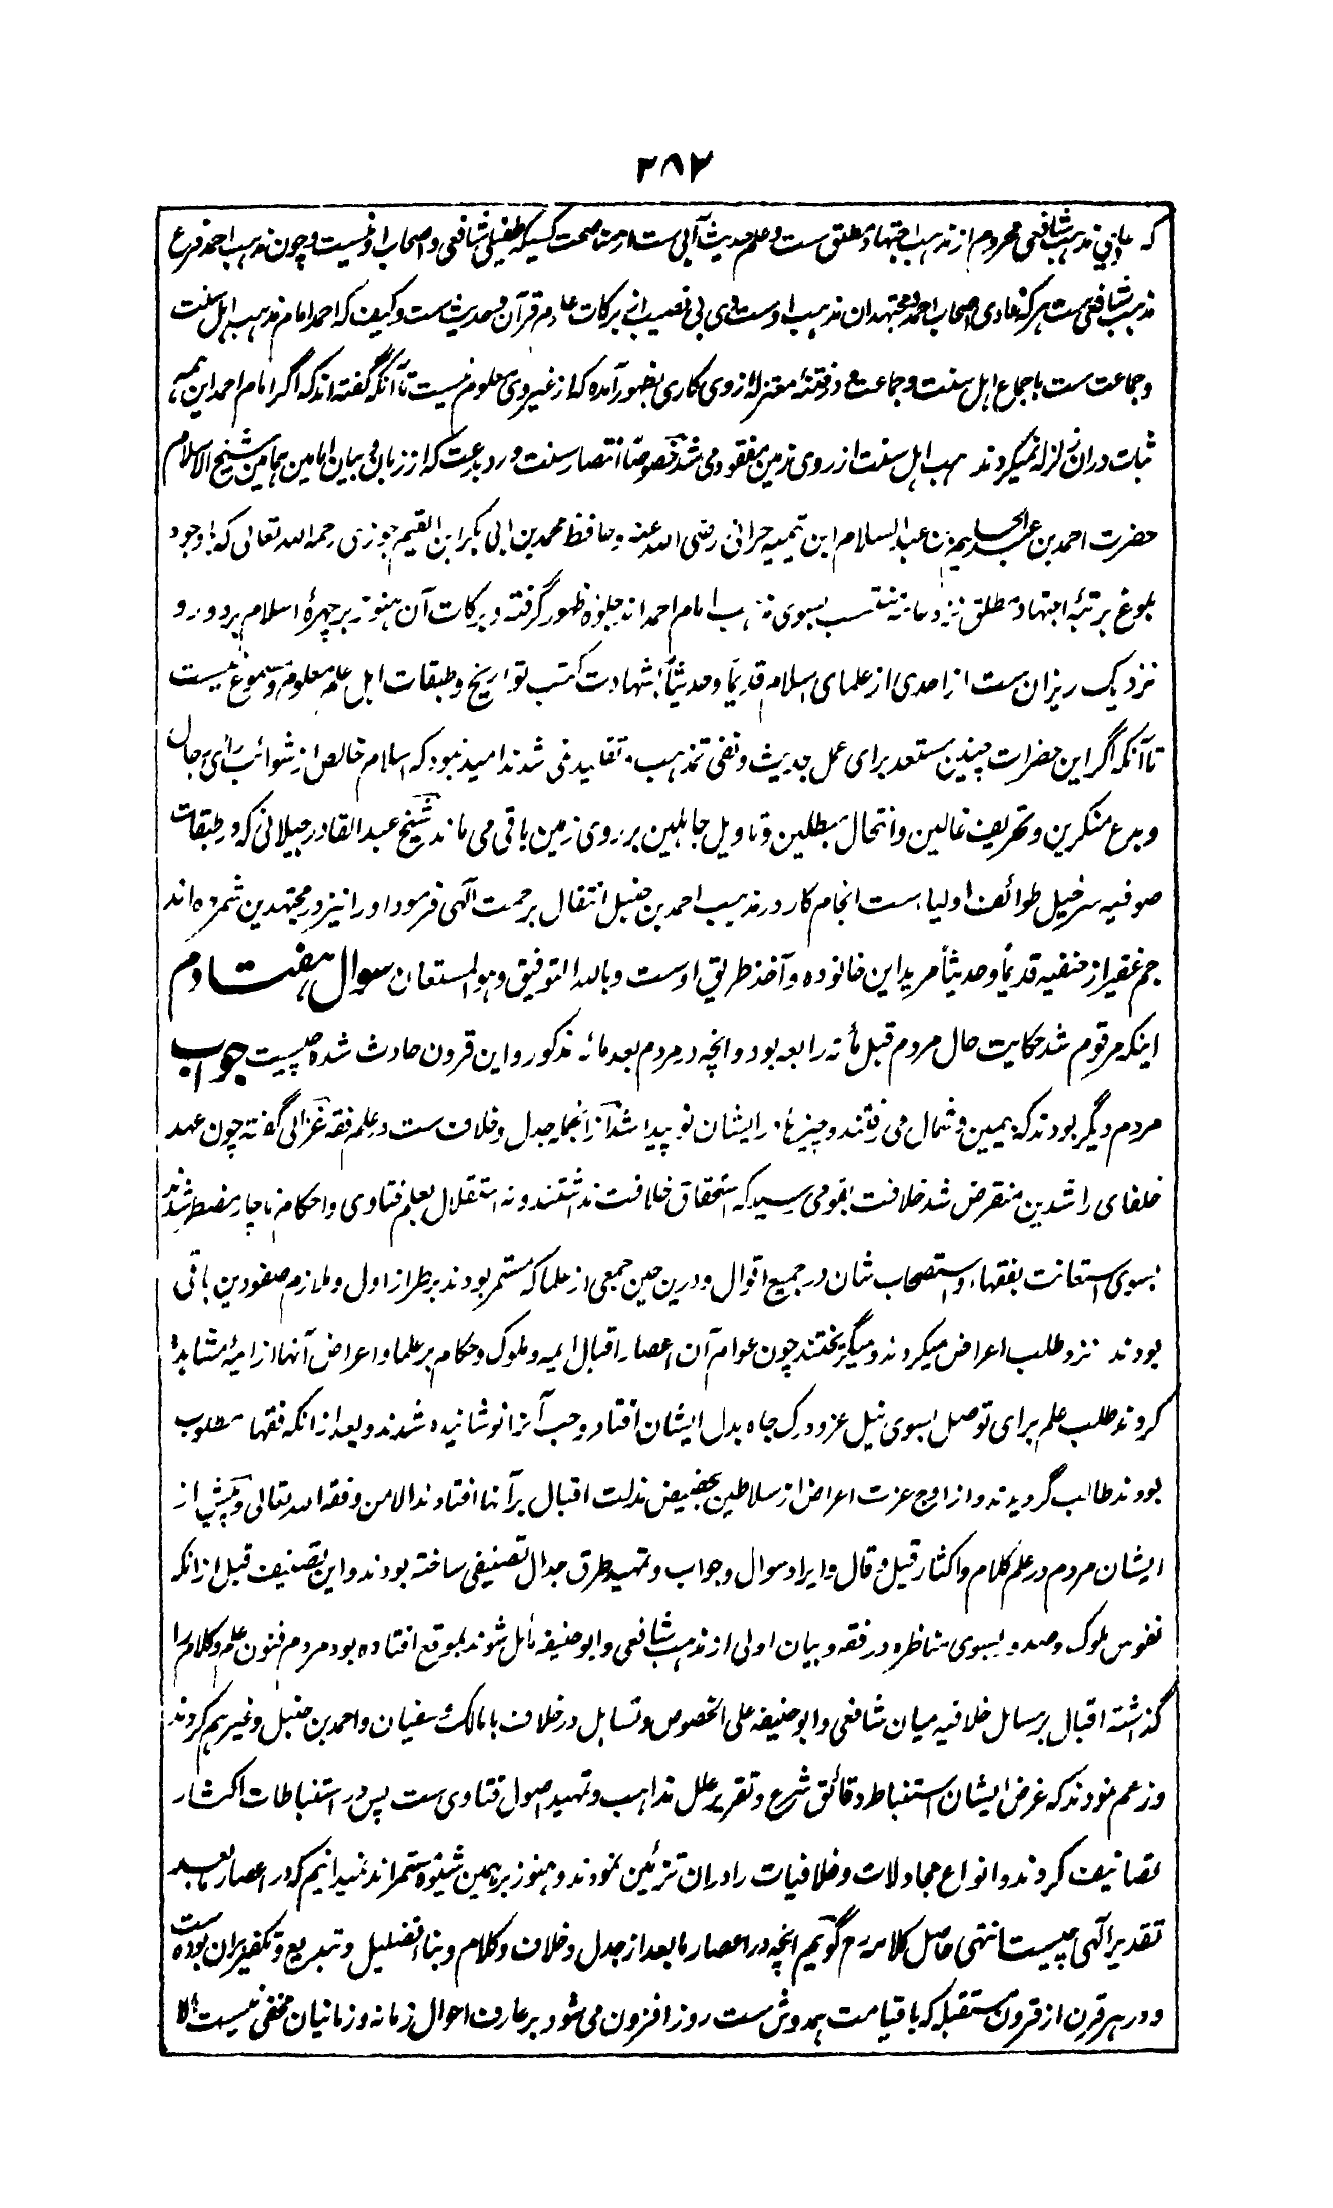 ۲۸۲
که عادی مذهب شافعی محروم از مذهب اجتهاد مطلق ست و علم حدیث آبی ست از مناصحت کسیکه طفیلی شافعی و اصحاب او نیست و چون مذهب احمد فرع
مذهب شافعی ست هر که عادی اصحاب احمد و مجتهدان مذهب اوست وی بی نصیب از برکات علوم قرآن و حدیث ست و کیف که احمد امام مذهب اهل سنت
و جماعت ست باجماع اهل سنت و جماعت و در فتنۀ معتزله از وی کاری بظهور آمده که از غیر وی معلوم نیست تا آنکه گفته اند که اگر امام احمد این همه
ثبات دران زلزله نمیکردند مذهب اهل سنت از روی زمین مفقود می شد خصوصاً انتصار سنت و رد بدعت که از زبان و بیان امامین همامین شیخ الاسلام
حضرت احمد بن عبدالحلیم بن عبدالسلام ابن تیمیه حرانی رضی الله عنه و حافظ محمد بن ابی بکر ابن القیم جوزی رحمه الله تعالی که باوجود
بلوغ برتبۀ اجتهاد مطلق نزد عامه منتسب بسوی مذهب امام احمد اند جلوۀ ظهور گرفته و برکات آن هنوز بر چهرۀ اسلام بر دور و
نزدیک ریزان ست از احدی از علمای اسلام قدیماً و حدیثاً بشهادت کتب تواریخ و طبقات اهل علم معلوم و مسموع نیست
تا آنکه اگر این حضرات چنین مستعد برای عمل بحدیث و نفی تمذهب و تقلید نمی شدند امید نبود که اسلام خالص از شوائب رأی رجال
و بدع منکرین و تحریف غالین و انتحال مبطلین و تاویل جاهلین بر روی زمین باقی می ماند شیخ عبدالقادر جیلانی که در طبقات
صوفیه سرخیل طوائف اولیاست انجام کار در مذهب احمد بن حنبل انتقال برحمت الٓهی فرمود او را نیز در مجتهدین شمرده اند
جم غفیر از حنفیه قدیماً و حدیثاً مرید این خانوده و آخذ طریق اوست و بالله التوفیق و هو المستعان سوال هفتادم
اینکه مرقوم شد حکایت حال مردم قبل مأته رابعه بود و انچه در مردم بعد مائه مذکور و این قرون حادث شده چیست جواب
مردم دیگر بودند که بیمین و شمال می رفتند و چیزها در ایشان نو پیدا شد ازانجمله جدل و خلاف ست در علم فقه غزالی گفته چون عهد
خلفای راشدین منقرض شد خلافت بقومی رسید که استحقاق خلافت نداشتند و نه استقلال بعلم فتاوی و احکام ناچار مضطر شدند
بسوی استعانت بفقها و استصحاب شان در جمیع اقوال و درین حین جمعی از علما که مستمر بودند بر طراز اول و ملازم صفو دین باقی
بودند نزد طلب اعراض میکردند و میگریختند چون عوام آن اعصار اقبال ایمه و ملوک و حکام بر علما و اعراض آنها از ایمه مشاهده
کردند طلب علم برای توصل بسوی نیل عز و درک جاه بدل ایشان افتاد و حب آنرا نوشانیده شدند و بعد ازانکه فقها مطلوب
بودند طالب گردیدند و از اوج عزت اعراض از سلاطین بحضیض مذلت اقبال بر آنها افتادند الا من وفقه الله تعالی و پیش از
ایشان مردم در علم کلام و اکثار قیل و قال و ایراد سوال و جواب و تمهید طرق جدال تصنیفی ساخته بودند و این تصنیف قبل ازانکه
نفوس ملوک و صدور بسوی مناظره در فقه و بیان اولی از مذهب شافعی و ابوحنیفه مائل شوند بموقع افتاده بود مردم فنون علم و کلام را
گذاشته اقبال بر مسائل خلافیه میان شافعی و ابوحنیفه علی الخصوص و تساهل در خلاف با مالک و سفیان و احمد بن حنبل و غیرهم کردند
و زعم نمودند که غرض ایشان استنباط دقائق شرع و تقریر علل مذاهب و تمهید اصول فتاوی ست پس در استنباطات اکثار
تصانیف کردند و انواع مجادلات و خلافیات را دران تزئین نمودند و هنوز بر همین شیوه مستمر اند نمیدانیم که در اعصار بعد
تقدیر الٓهی چیست انتهی حاصل کلامه رح گویم انچه در اعصار مابعد از جدل و خلاف و کلام و بنا تضلیل و تبدیع و تکفیر بران بوده ست
و در هر قرن از قرون مستقبله که با قیامت همدوش ست روز افزون می شود بر عارف احوال زمانه و زمانیان مخفی نیست الا